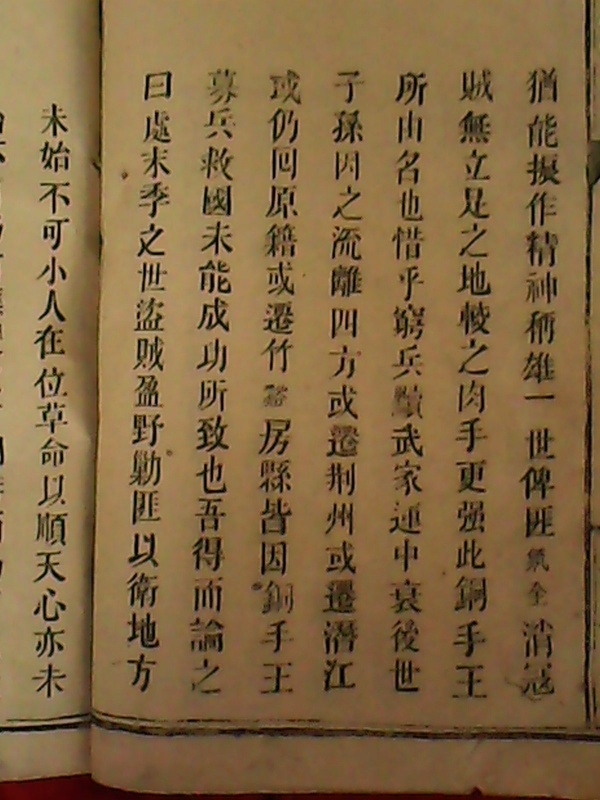 猶能振作精神稱雄一世俾匪氣全消冦
賊無立足之地較之肉手更强此銅手王
所由名也惜乎窮兵黷武家運中衰後世
子孫因之流離四方或遷荆州或遷潛江
或仍回原籍或遷竹谿房縣皆因銅手王
募兵救國未能成功所致也吾得而論之
曰處末季之世盜賊盈野勦匪以衛地方
未始不可小人在位草命以順天心亦未